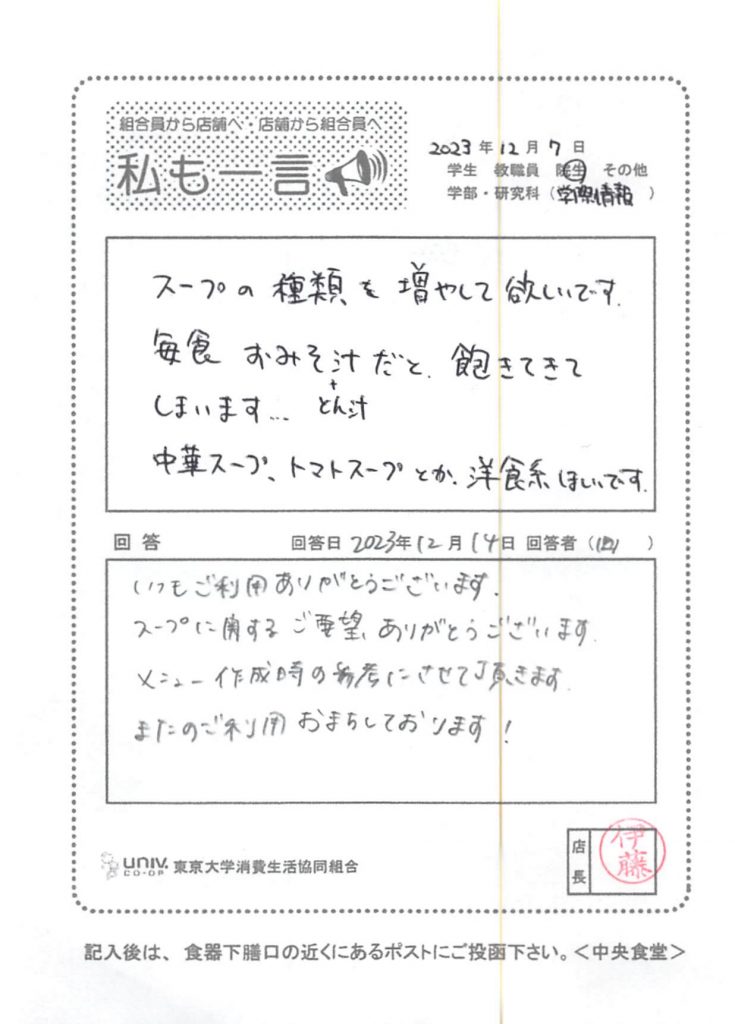 組合員から店舗へ・店舗から組合員へ
私も一言
2023年12月7日
学生 教職員 院生 その他
学部・研究科（学際情報）
スープの種類を増やして欲しいです.
毎食 おみそ汁だと、飽きてきて
+
しまいます… とん汁
中華スープ、トマトスープとか、洋食系ほしいです.
回答 回答日 2023年12月14日 回答者（ ）
いつもご利用ありがとうございます.
スープに関するご要望、ありがとうございます.
メニュー作成時の参考にさせて頂きます.
またのご利用おまちしております！
univ.
CO-OP
東京大学消費生活協同組合
店長
伊藤
記入後は、食器下膳口の近くにあるポストにご投函下さい。＜中央食堂＞